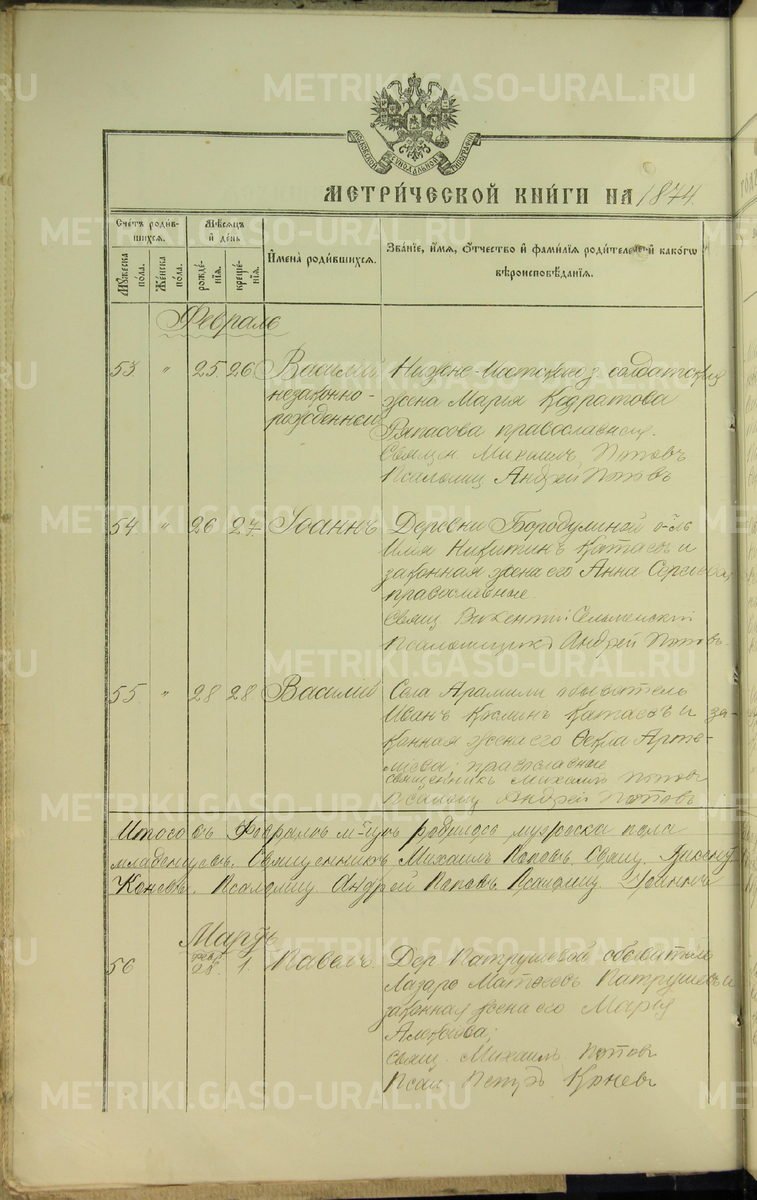 METRIKI.GASO-URAL.RU
МЕТРИ́ЧЕСКОЙ КНИ́ГИ НА 1874
Сче́тъ роди́вшихся.
Му́жеска по́ла.
Же́нска по́ла.
Мѣ́сяцъ и҆ де́нь
рожде́нїя.
креще́нїя.
И҆мена̀ роди́вшихся.
Зва́нїе, и҆́мя, ѻ҆́тчество и҆ фами́лїя роди́телей и҆ како́гѡ
вѣроисповѣ́данїя.
Февраль
53 " 25 26 Василий незаконно-рожденный
солдатская
жена Марья Кодратова
православная.
Священ Михаилъ Поповъ
Псаломщ Андрей Поповъ
54 " 26 27 Іоаннъ
Деревни Бородулиной об-ль
Илья Никитинъ Катаевъ и
законная жена его Анна Сергеева,
православные
Свящ Викентий
Псаломщикъ Андрей Поповъ.
55 " 28 28 Василий
Села Арамили обыватель
Иванъ Катаевъ и за-
конная жена его Фекла Арте-
миева; православные
священникъ Михаилъ Поповъ
Псаломщ Андрей Поповъ
Итого въ Февралѣ м-цѣ родилось мужеска пола
младенцевъ. Священникъ Михаилъ Поповъ. Свящ.
Псаломщ Андрей Поповъ. Псаломщ. Іоаннъ
Мартъ
56 фев. 28. 1. Павелъ
Дер Патрушевой обыватель
Лазарь Матѳеевъ Патрушевъ и
законная жена его Марья
Алексеева;
свящ. Михаилъ Поповъ
Псал Петръ Коневъ